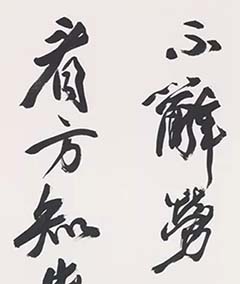 不辭勞
看方知